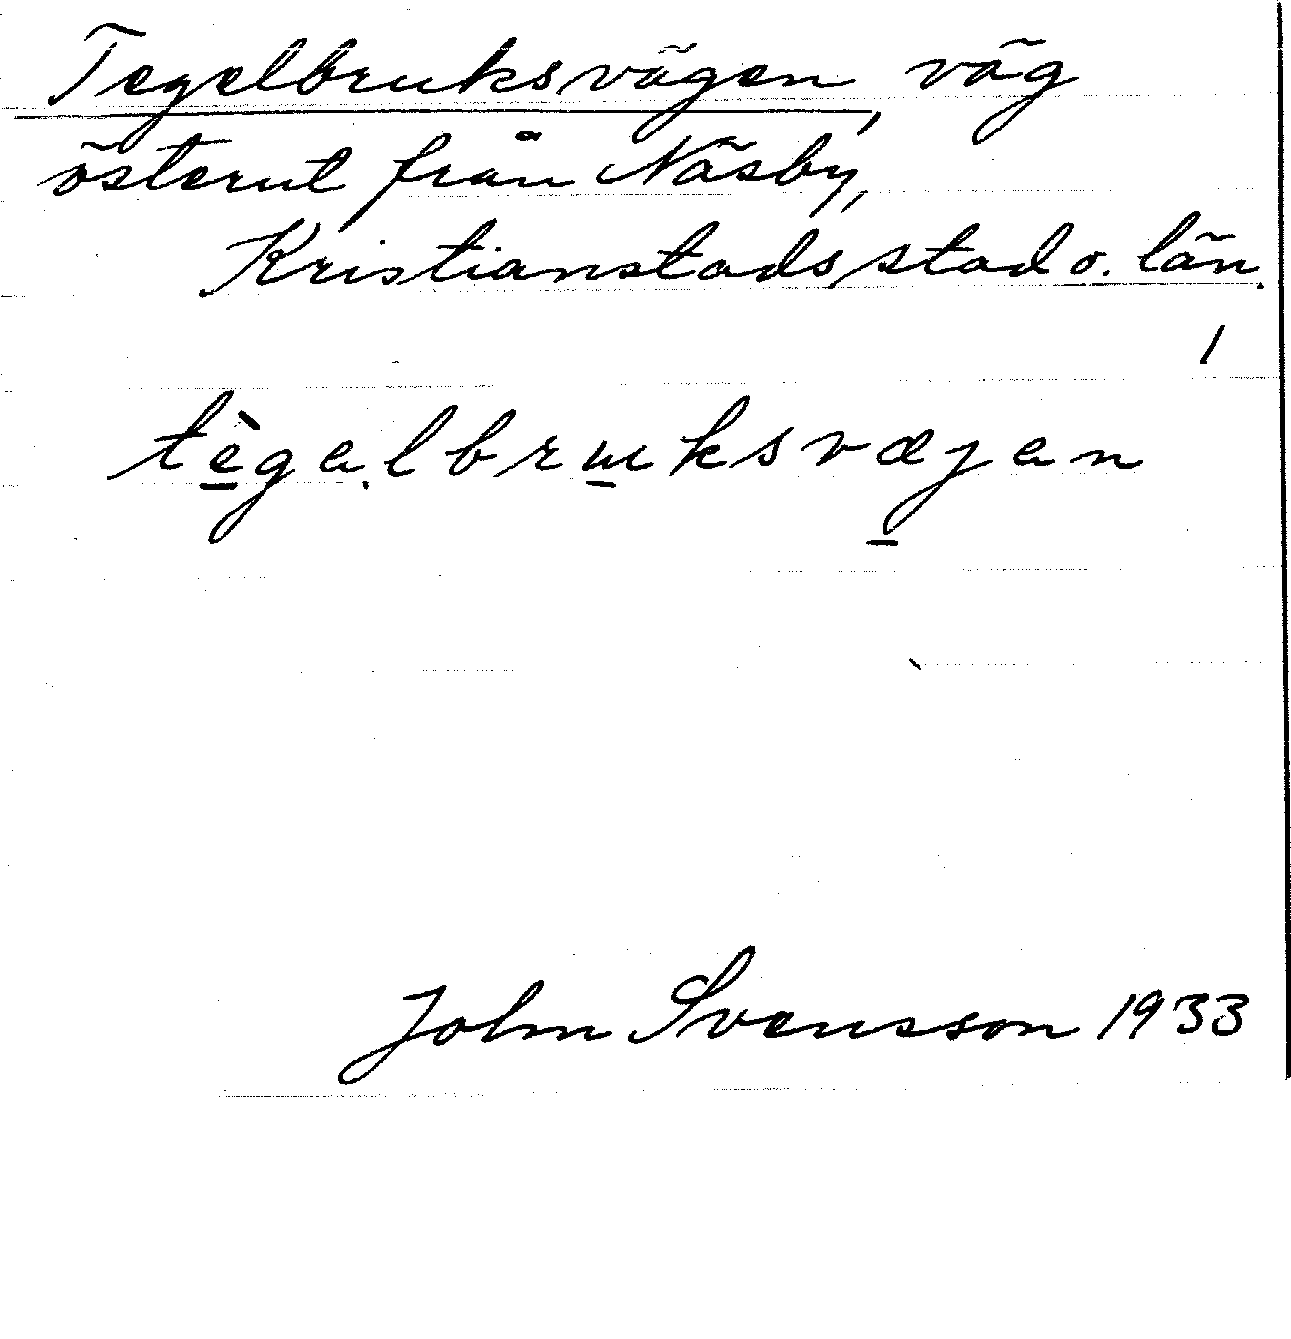 Tegelbruksvägen, väg
österut från Näsby,
Kristianstads stad o. län.
1
tègelbruksvæjen
John Svensson 1933